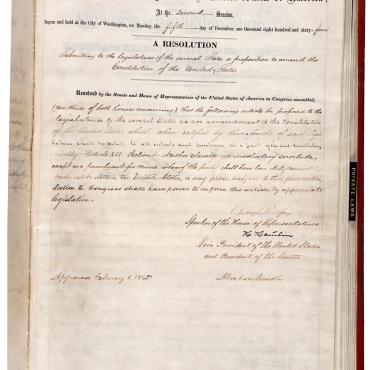 At the second Session,
Begun and held at the City of Washington, on Monday, the fifth day of December, one thousand eight hundred and sixty-four
A RESOLUTION
Submitting to the legislatures of the several States a proposition to amend the
Constitution of the United States
Resolved by the Senate and House of Representatives of the United States of America in Congress assembled,
(two thirds of both houses concurring) that the following article be proposed to the
legislatures of the several States as an amendment to the constitution
of the United States, which, when ratified by three fourths of said legis
latures shall be valid, to all intents and purposes, as a part of
Article XIII. Section 1. Neither Slavery nor involuntary servitude,
except as a punishment for crime whereof the party shall have been duly
the United States, or any place subject to
Section 2. Congress shall have power to enforce this article by appropriate
legislation.
Speaker of the House of Representatives
H. Hamlin
Vice President of the United States
and President of the Senate
Approved February 1, 1865.
Abraham Lincoln
PRIVATE LAWS